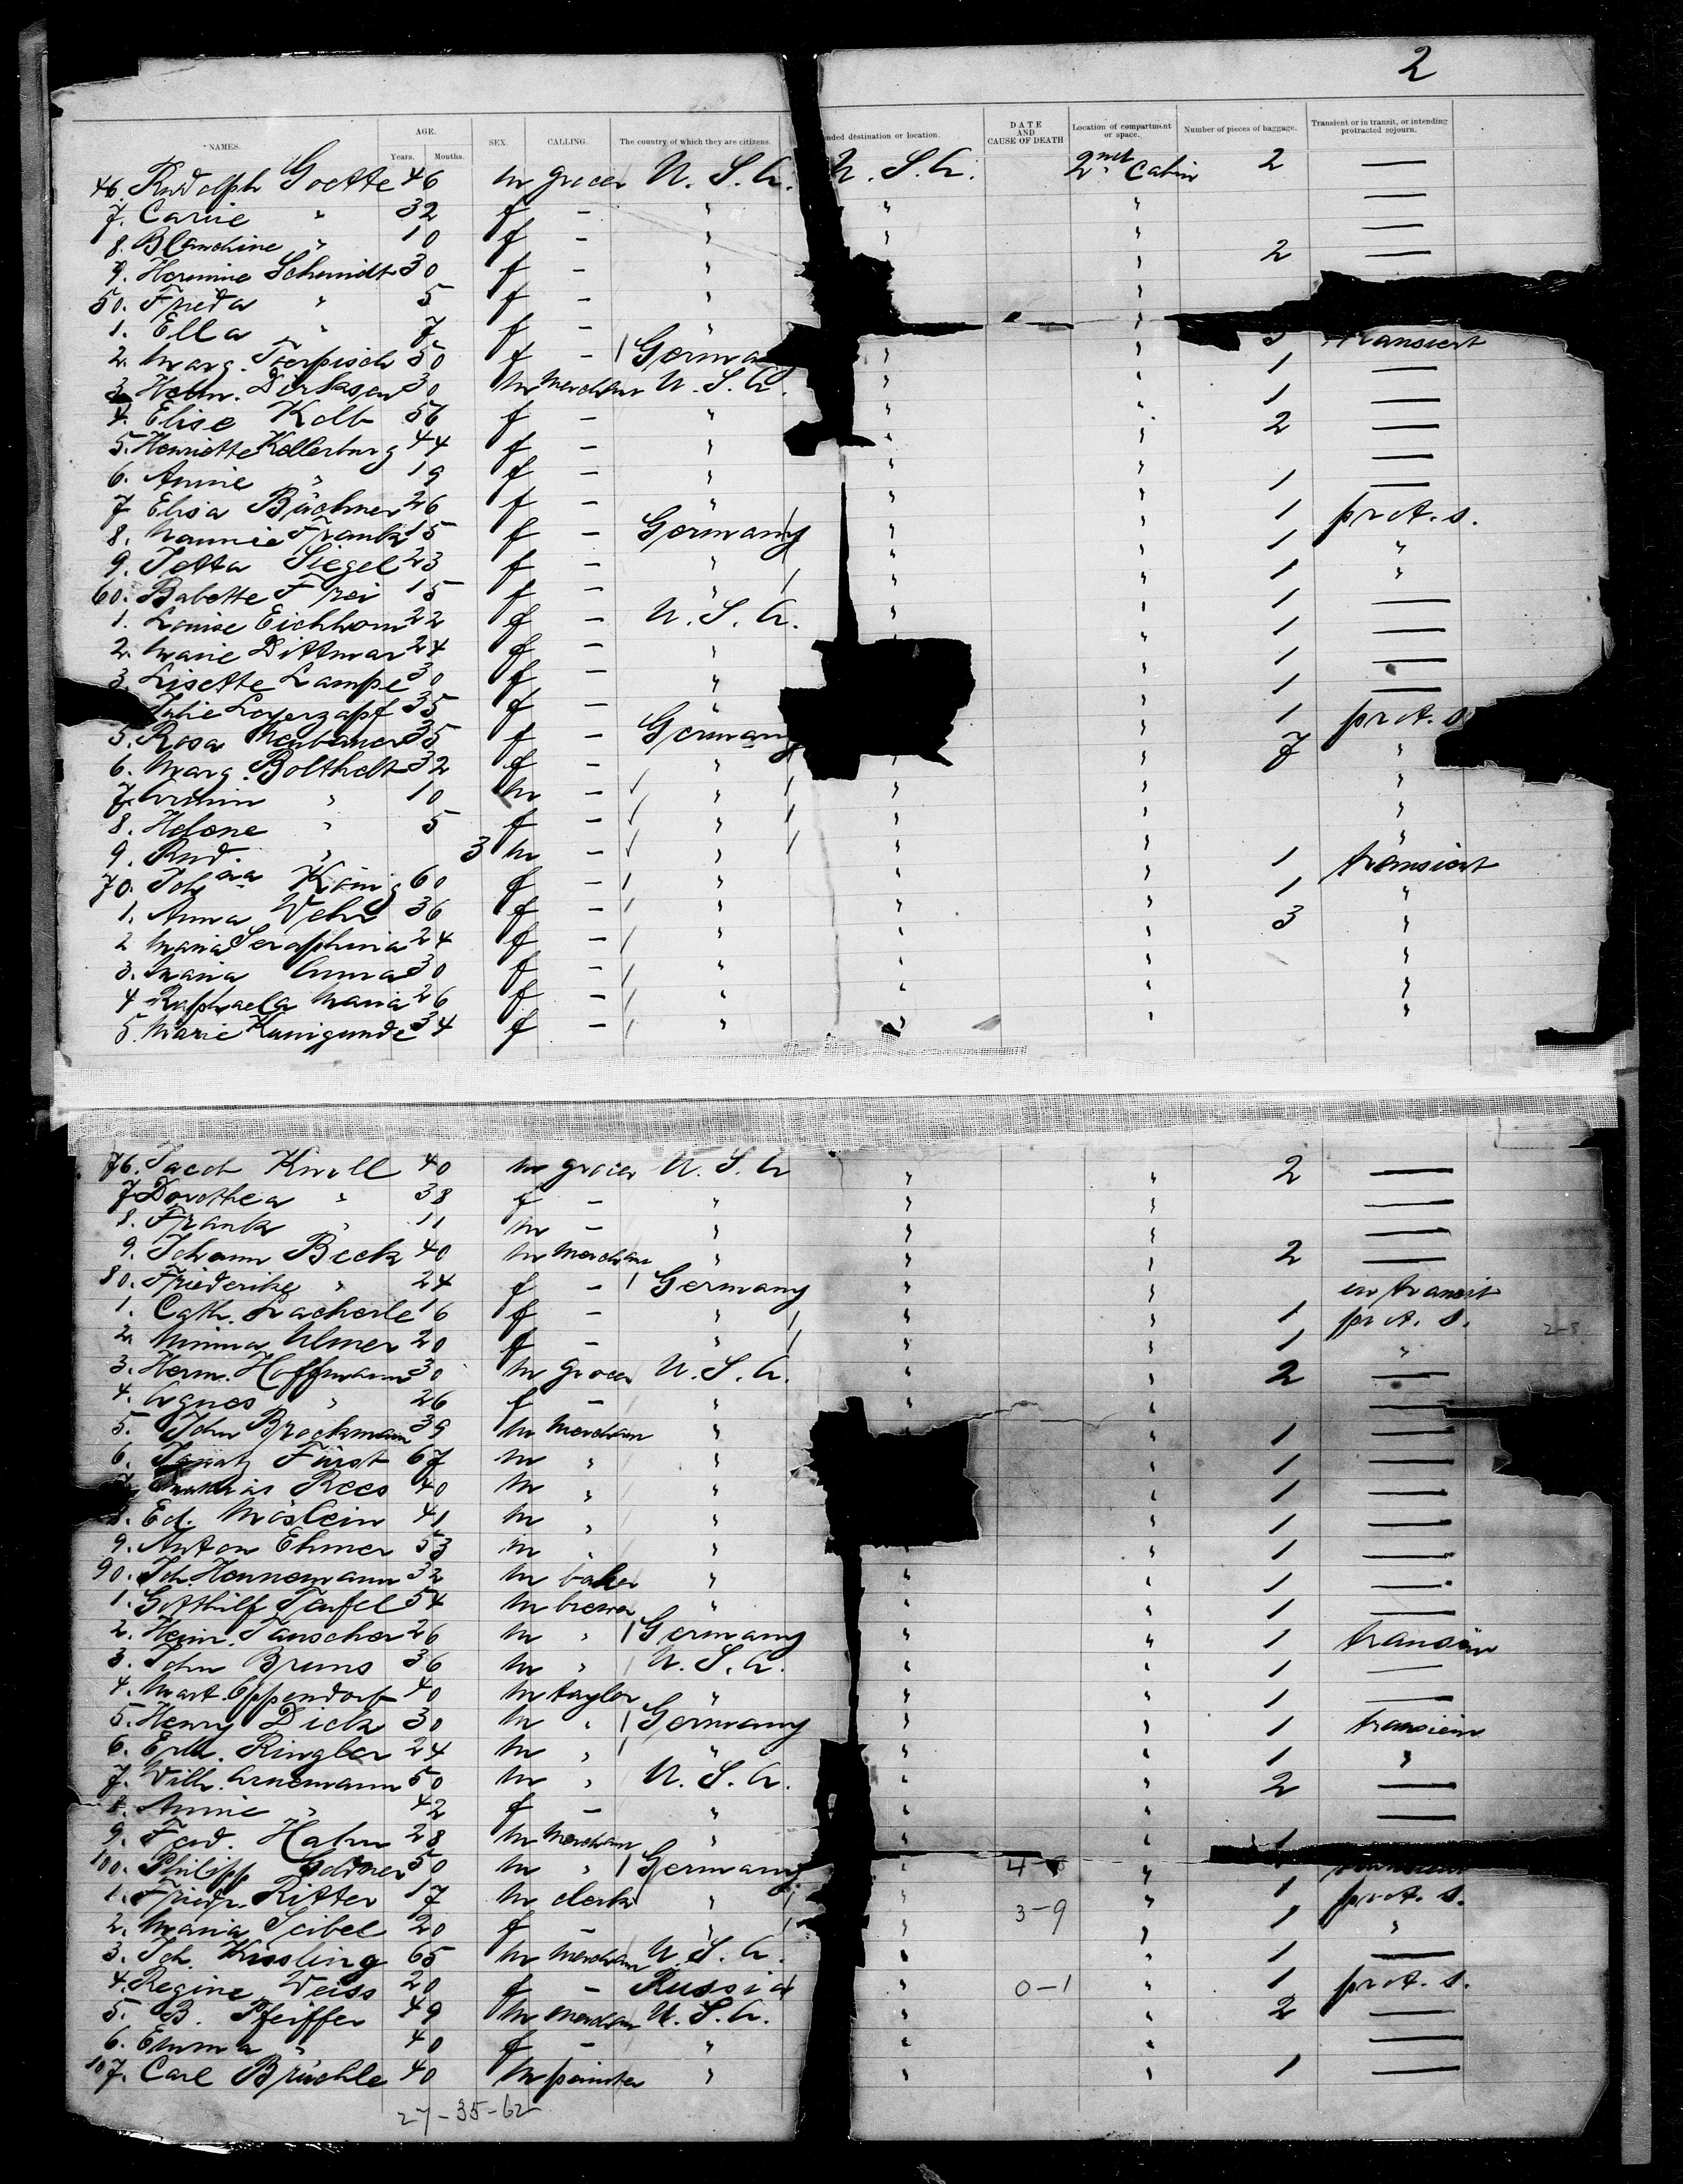 2
*NAMES. AGE. Years. Months. SEX. CALLING. The country of which they are citizens. nded destination or location. DATE AND CAUSE OF DEATH Location of compartment or space. Number of pieces of baggage. Transient or in transit, or intending protracted sojourn.
46. Rudolph Goette 46 m grocer U. S. A. U. S. A. 2nd Cabin 2 —
7. Carrie " 32 f - " " " —
8. Blanchine " 10 f - " " " —
9. Hermine Schmidt 30 f - " " " 2 —
50. Frieda " 5 f - " "
1. Ella " 7 f - " "
2. Marg. 50 f - Germa " " 3 transient
3. Helm. Derksen 30 m merchan U. S. A. " " 1 —
4. Elise Kolb 56 f - " " " 1 —
5. Henriette Kellerburg 44 f - " " " 2 —
6. Annie " 19 f - " " " —
7 Elisa Büchner 26 f - " " " 1 —
8. Nannie Frank 15 f - Germany " " 1 prot. s.
9. Jetta Siegel 23 f - " " " 1 "
60. Babette Frei 15 f - " " " 1 "
1. Louise Eichhorn 22 f - U. S. A. " " 1 —
2. Marie Dittmar 24 f - " " 1 —
3. Lisette Lampe 30 f - " " 1 —
Julie Loyerzapf 35 f - " " 1 —
5. Rosa Neubauer 35 f - Germany " 1 prot. s
6. Marg. Bolthedt 32 f - " " " 7 "
7. Armin " 10 m - " " " "
8. Helene " 5 f - " " " "
9. Rud. " 3 m - " " " "
70. Joh.na König 60 f - " " " 1 transient
1. Anna Vehr 36 f - " " " 1 "
2 Maria Seraphina 24 f - " " " 3 "
3. Maria Anna 30 f - " " " "
4 Raphaela Maria 26 f - " " " "
5 Marie Kunigunde 34 f - " " " "
76. Jacob Knoll 40 m grocer U. S. A " " 2 —
7 Dorothea " 38 f - " " " —
8. Frank " 11 m - " " " —
9. Johann Beck 40 m merchan " " " 2 —
80. Friederike " 24 f - Germany " " en transit
1. Cath. Lacherle 16 f - " " " 1 prot. s.
2. Minna Ulmer 20 f - " " " 1 " 2-8.
3. Herm. Hoffmann 30 m grocer U. S. A. " " 2 —
4. Agnes " 26 f - " " " —
5. John Brockmann 39 m merchan " " 1 —
6. Ignatz Fürst 67 m " " " 1 —
Mathias Rees 40 m " " " 1 —
8. Ed. Möslein 41 m " " " 1 —
9. Anton Ehmer 53 m " " " 1 —
90. Joh. Hennemann 32 m baker " " " 1 —
1. Gotthilf Teufel 54 m brewer " " " 1 —
2. Heinr. Tauscher 26 m " Germany " " 1 transien
3. John Bruns 36 m " U. S. A. " " 1 —
4. Mart. Oppendorf 40 m taylor " " " 1 —
5. Henry Dick 30 m " Germany " " 1 transien
6. Ringler 24 m " " " " 1 "
7. Wilh. Arnemann 50 m " U. S. A. " " 2 —
8. Annie " 42 f - " " " —
9. Ferd. Hahn 28 m merchan " " 1
100. Philipp 50 m " Germany " 4- " transient
1. Friedr. Ritter 17 m clerk " " " 1 prot. s.
2. Maria Seibel 20 f - " " 3-9 " 1 "
3. Joh. Kissling 65 m merchan U. S. A. " " 1 —
4. Regine Weiss 20 f - Russia " 0-1 " 1 prot. s.
5. B. Pfeiffer 49 m merchan U. S. A. " " 2 —
6. Emma " 40 f - " " " —
107. Carl Brüchle 40 m painter " " " 1 —
27-35-62